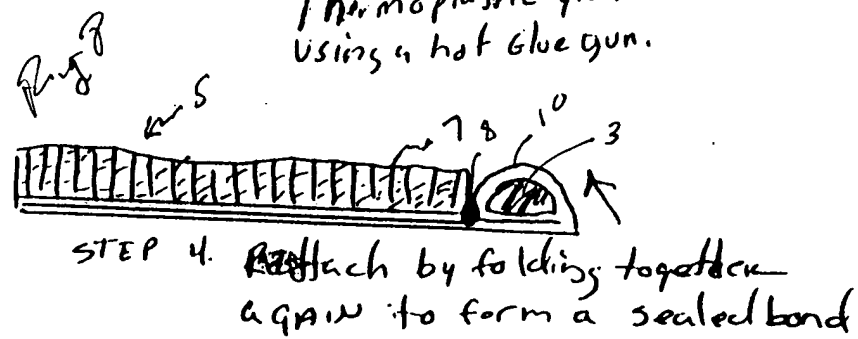 Thermoplastic
using a hot Glue gun.
5
7 8 10 3
STEP 4. Reattach by folding together
aGAIN to form a sealed bond